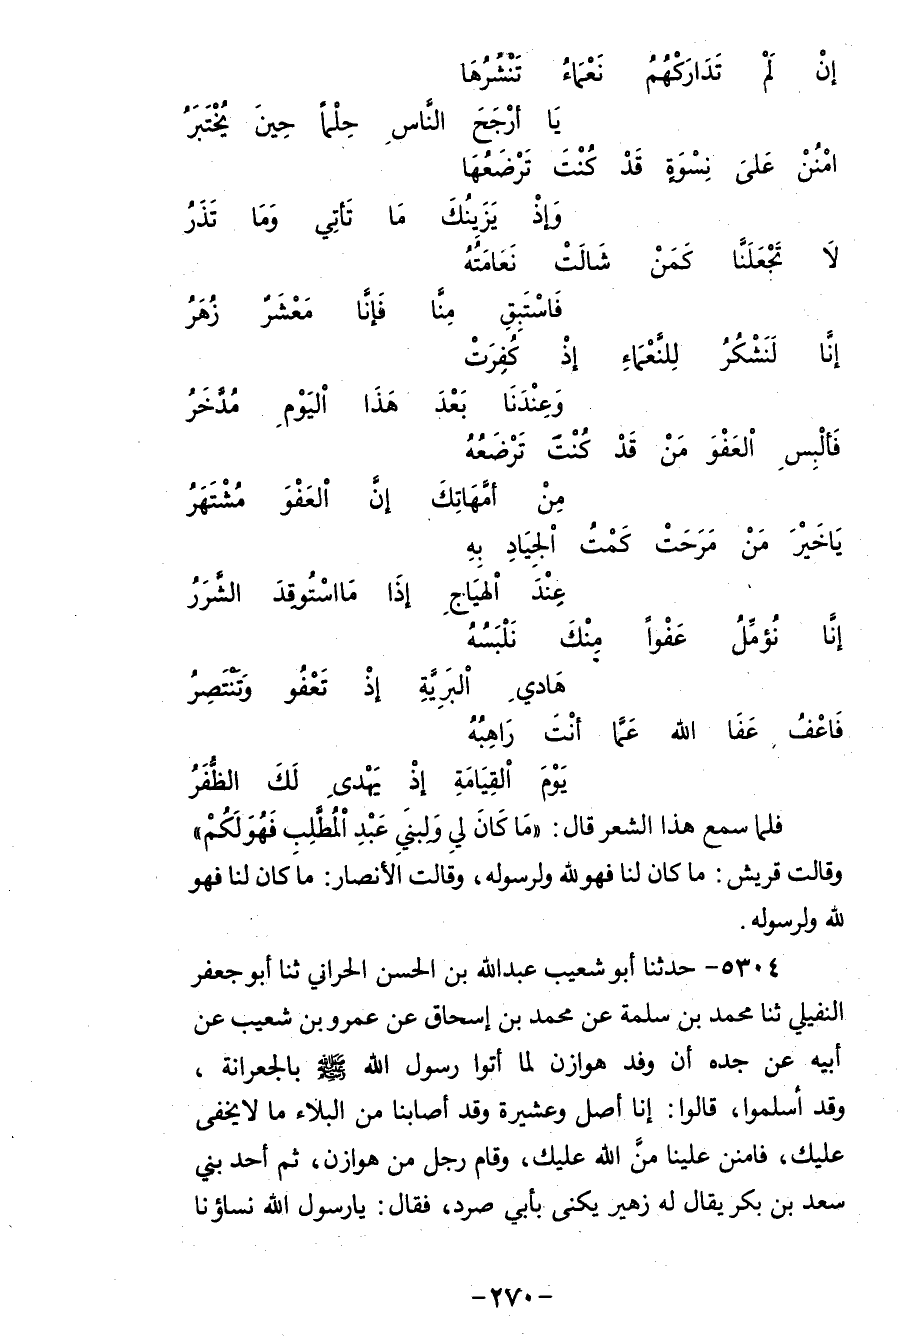 إنْ لَمْ تَدَارَكْهُمُ نَعْمَاءُ تَنْشُرُهَا
يَا أرْجَحَ النَّاسِ حِلْماً حِينَ يُخْتَبَرُ
امْنُنْ عَلىَ نِسْوَةٍ قَدْ كُنْتَ تَرْضَعُهَا
وَإذْ يَزِينُكَ مَا تَأتِي وَمَا تَذَرُ
لاَ تَجْعَلَنَّا كَمَنْ شَالَتْ نَعَامَتُهُ
فَاسْتَبِقِ مِنَّا فَإنَّا مَعْشَرٌ زُهَرُ
إنَّا لَنَشْكُرُ لِلنَّعْمَاءِ إذْ كُفِرَتْ
وَعِنْدَنَا بَعْدَ هَذَا اْليَوْمِ مُدَّخَرُ
فَألْبِسِ اْلعَفْوَ مَنْ قَدْ كُنْتَ تَرْضَعُهُ
مِنْ أمَّهَاتِكَ إنَّ اْلعَفْوَ مُشْتَهَرُ
يَاخَيْرَ مَنْ مَرَحَتْ كَمْتُ اْلجِيَادِ بِهِ
عِنْدَ اْلهيَاجِ إذَا مَااسْتُوقِدَ الشَّرَرُ
إنَّا نُؤمِّلُ عَفْواً مِنْكَ نَلْبَسُهُ
هَادِي اْلبَرِيَّةِ إذْ تَعْفُو وَتَنْتَصِرُ
فَاعْفُ عَفَا الله عَمَّا أنْتَ رَاهِبُهُ
يَوْمَ اْلقِيَامَةِ إذْ يَهْدِى لَكَ الظُّفَرُ
فلما سمع هذا الشعر قال: «مَا كَانَ لِي وَلِبَنِي عَبْدِ اْلمُطَّلِبِ فَهُوَ لَكُمْ»
وقالت قريش: ما كان لنا فهو لله ولرسوله، وقالت الأنصار: ما كان لنا فهو
لله ولرسوله.
٥٣٠٤- حدثنا أبو شعيب عبدالله بن الحسن الحراني ثنا أبو جعفر
النفيلي ثنا محمد بن سلمة عن محمد بن إسحاق عن عمرو بن شعيب عن
أبيه عن جده أن وفد هوازن لما أتوا رسول الله ﷺ بالجعرانة ،
وقد أسلموا، قالوا: إنا أصل وعشيرة وقد أصابنا من البلاء ما لايخفى
عليك، فامنن علينا منَّ الله عليك، وقام رجل من هوازن، ثم أحد بني
سعد بن بكر يقال له زهير يكنى بأبي صرد، فقال: يارسول الله نساؤنا
-٢٧٠-